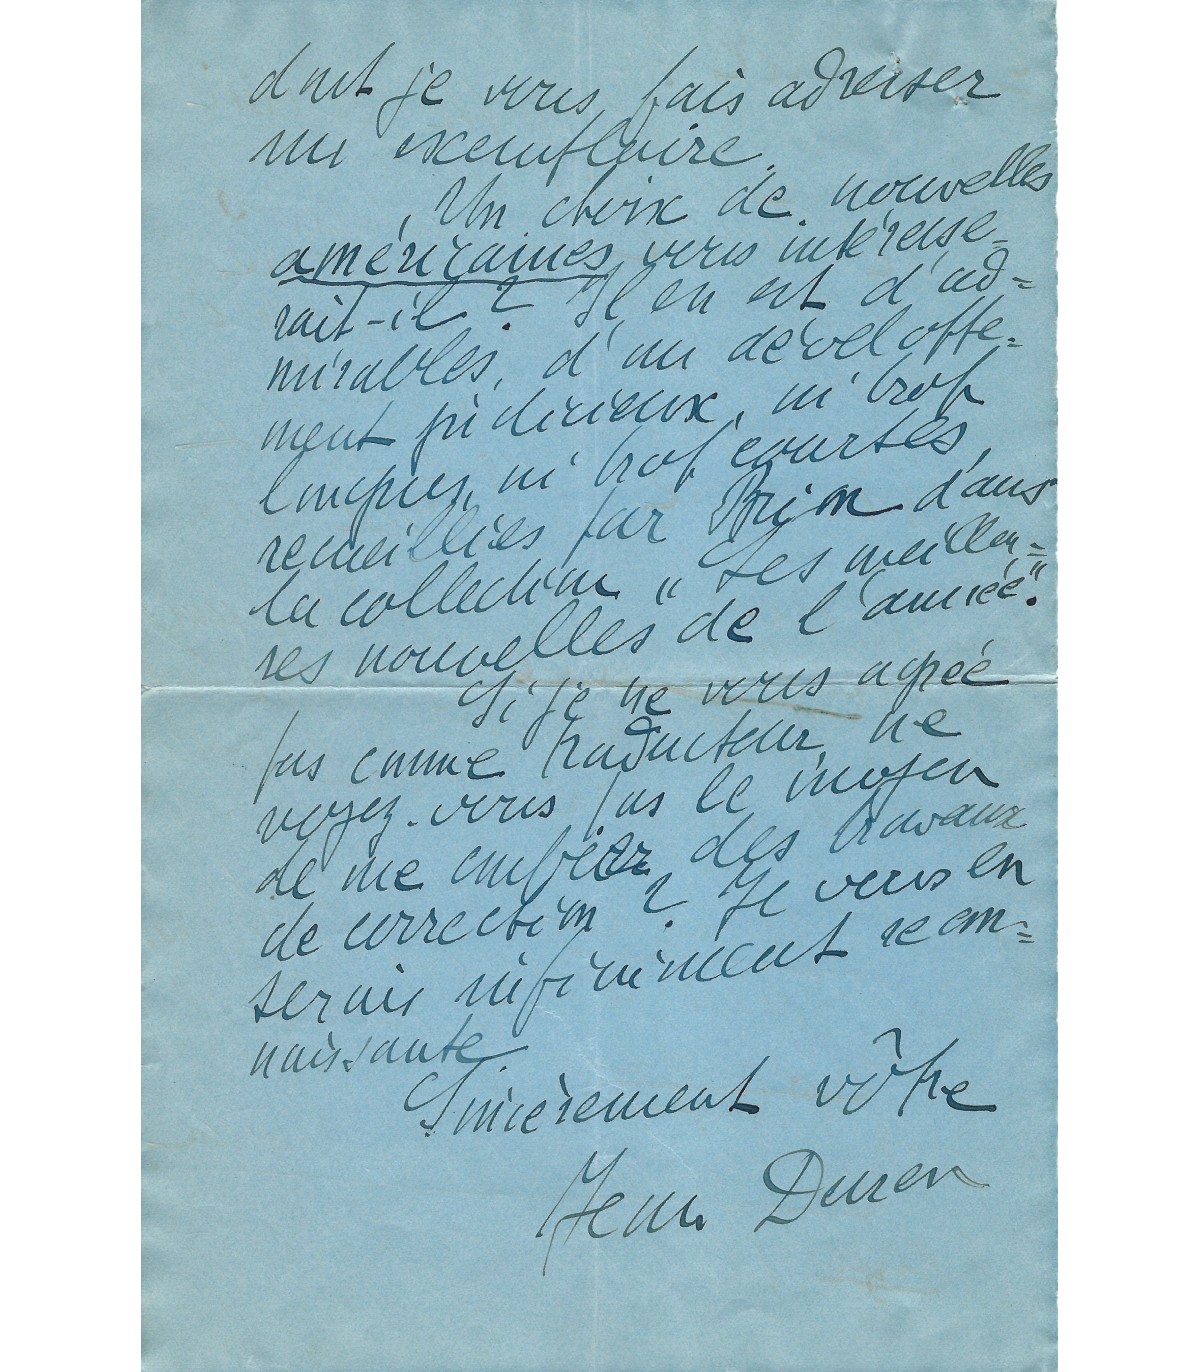 dont je vous fais adresser
un exemplaire.
Un choix de nouvelles
américaines vous intéresse-
rait-il ? Il en est d'ad=
mirables, d'un développe-
ment judicieux, ni trop
longues, ni trop courtes,
recueillies par O'Brien dans
la collection "Les meilleu=
res nouvelles de l'année".
Si je ne vous agrée
pas comme traducteur, ne
voyez-vous pas le moyen
de me confier des travaux
de correction ? Je vous en
serais infiniment recon=
naissante.
Sincèrement vôtre
Jean Duren